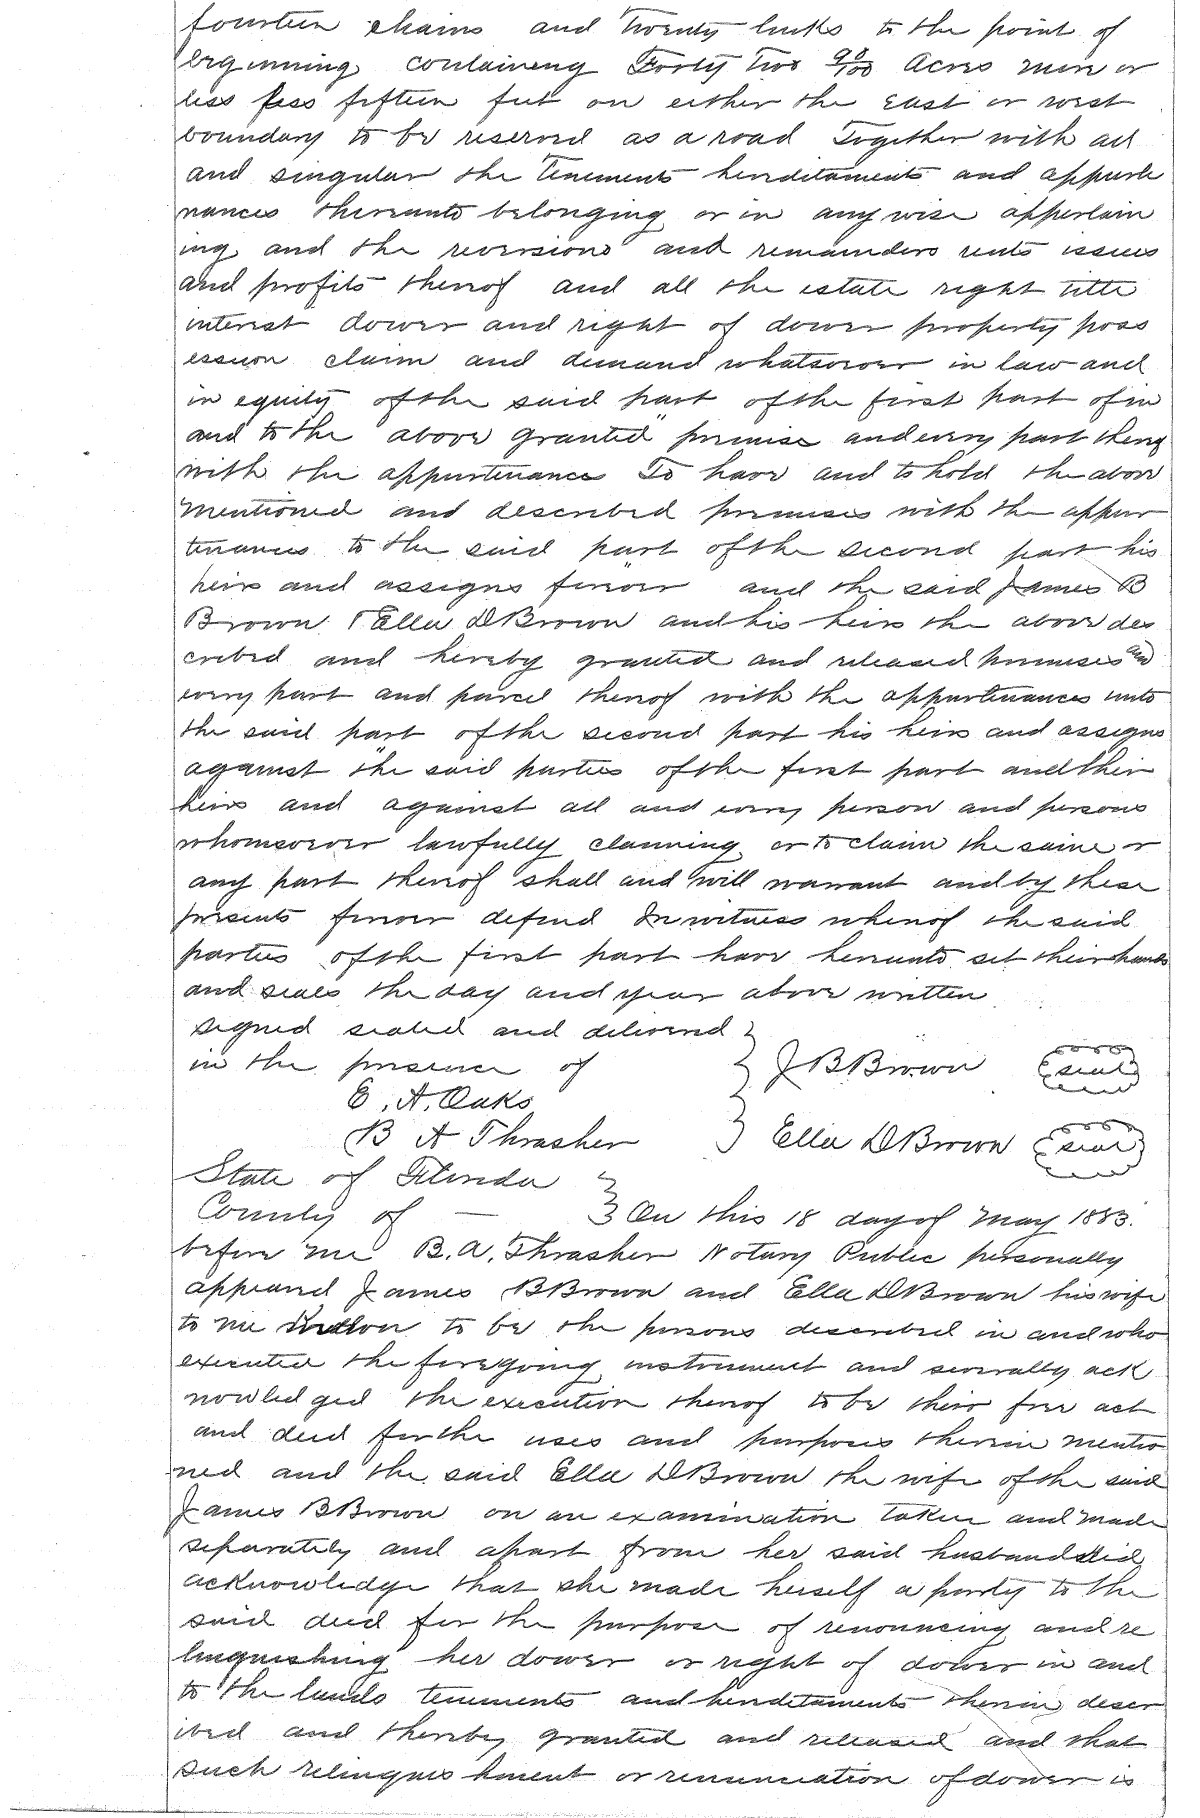 fourteen chains and Twenty links to the point of
beginning containing Forty Two 90/100 Acres more or
less less fifteen feet on either the East or west
boundary to be reserved as a road Together with all
and singular the Tenements hereditaments and appurte
nances thereunto belonging or in any wise appertain
ing and the reversions and remainders rents issues
and profits thereof and all the estate right title
interest dower and right of dower property poss
ession claim and demand whatsoever in law and
in equity of the said part of the first part of in
and to the above granted premise and every part thereof
with the appurtenances To have and to hold the above
mentioned and described premises with the appur
tenances to the said part of the second part his
heirs and assigns forever and the said James B
Brown & Ella D Brown and his heirs the above des
cribed and hereby granted and released premises and
every part and parcel thereof with the appurtenances unto
the said part of the second part his heirs and assigns
against the said parties of the first part and their
heirs and against all and every person and persons
whomsoever lawfully claiming or to claim the same or
any part thereof shall and will warrant and by these
presents forever defend In witness whereof the said
parties of the first part have hereunto set their hands
and seals the day and year above written
signed sealed and delivered
in the presence of J B Brown seal
E. A. Oaks
B A Thrasher Ella D Brown seal
State of Florida
County of — On this 18 day of May 1883.
before me B. A. Thrasher Notary Public personally
appeared James B Brown and Ella D Brown his wife
to me known to be the persons described in and who
executed the foregoing instrument and severally ack
nowledged the execution thereof to be their free act
and deed for the uses and purposes therein mentio
ned and the said Ella D Brown the wife of the said
James B Brown on an examination taken and made
separately and apart from her said husband did
acknowledge that she made herself a party to the
said deed for the purpose of renouncing and re
linquishing her dower or right of dower in and
to the lands tenements and hereditaments therein descr
ibed and thereby granted and released and that
such relinquishment or renunciation of dower is